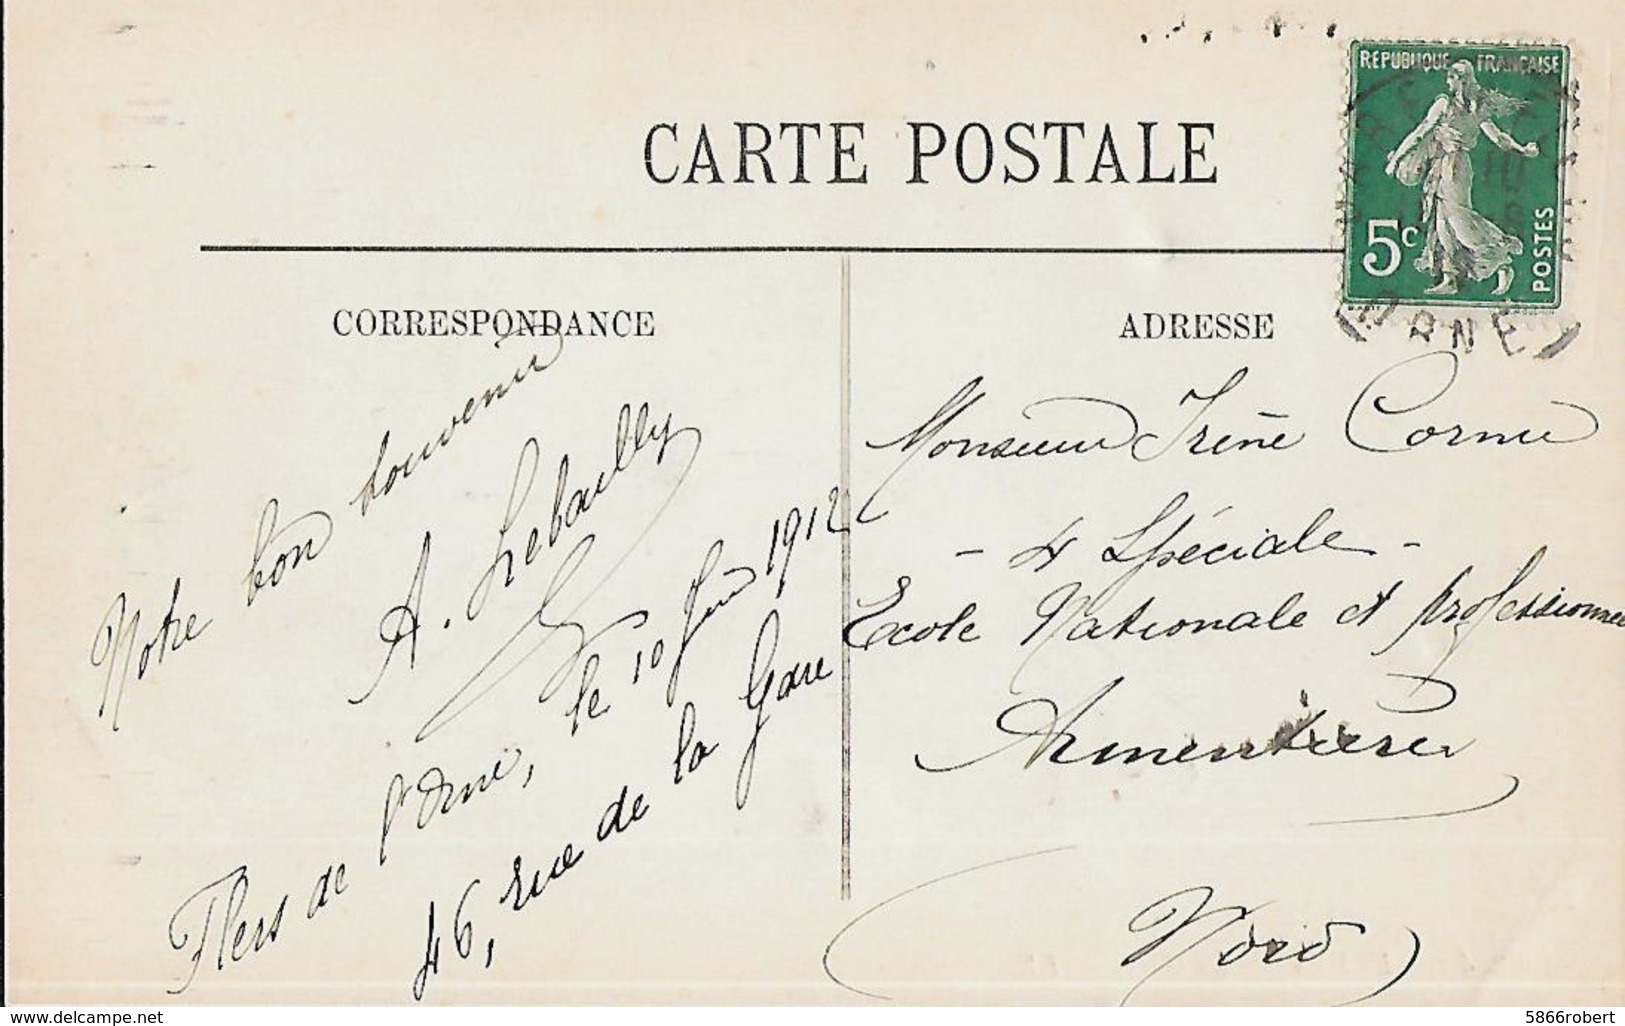 CARTE POSTALE
REPUBLIQUE FRANÇAISE
5c
POSTES
ORNE
CORRESPONDANCE
ADRESSE
Notre bon souvenir
A. Lebailly
Flers de l'Orne, le 10 Juin 1912
46, rue de la Gare
Monsieur Irène Cornu
- 4 Spéciale -
Ecole Nationale et professionnel
Armentières
(Nord)
www.delcampe.net
5866robert